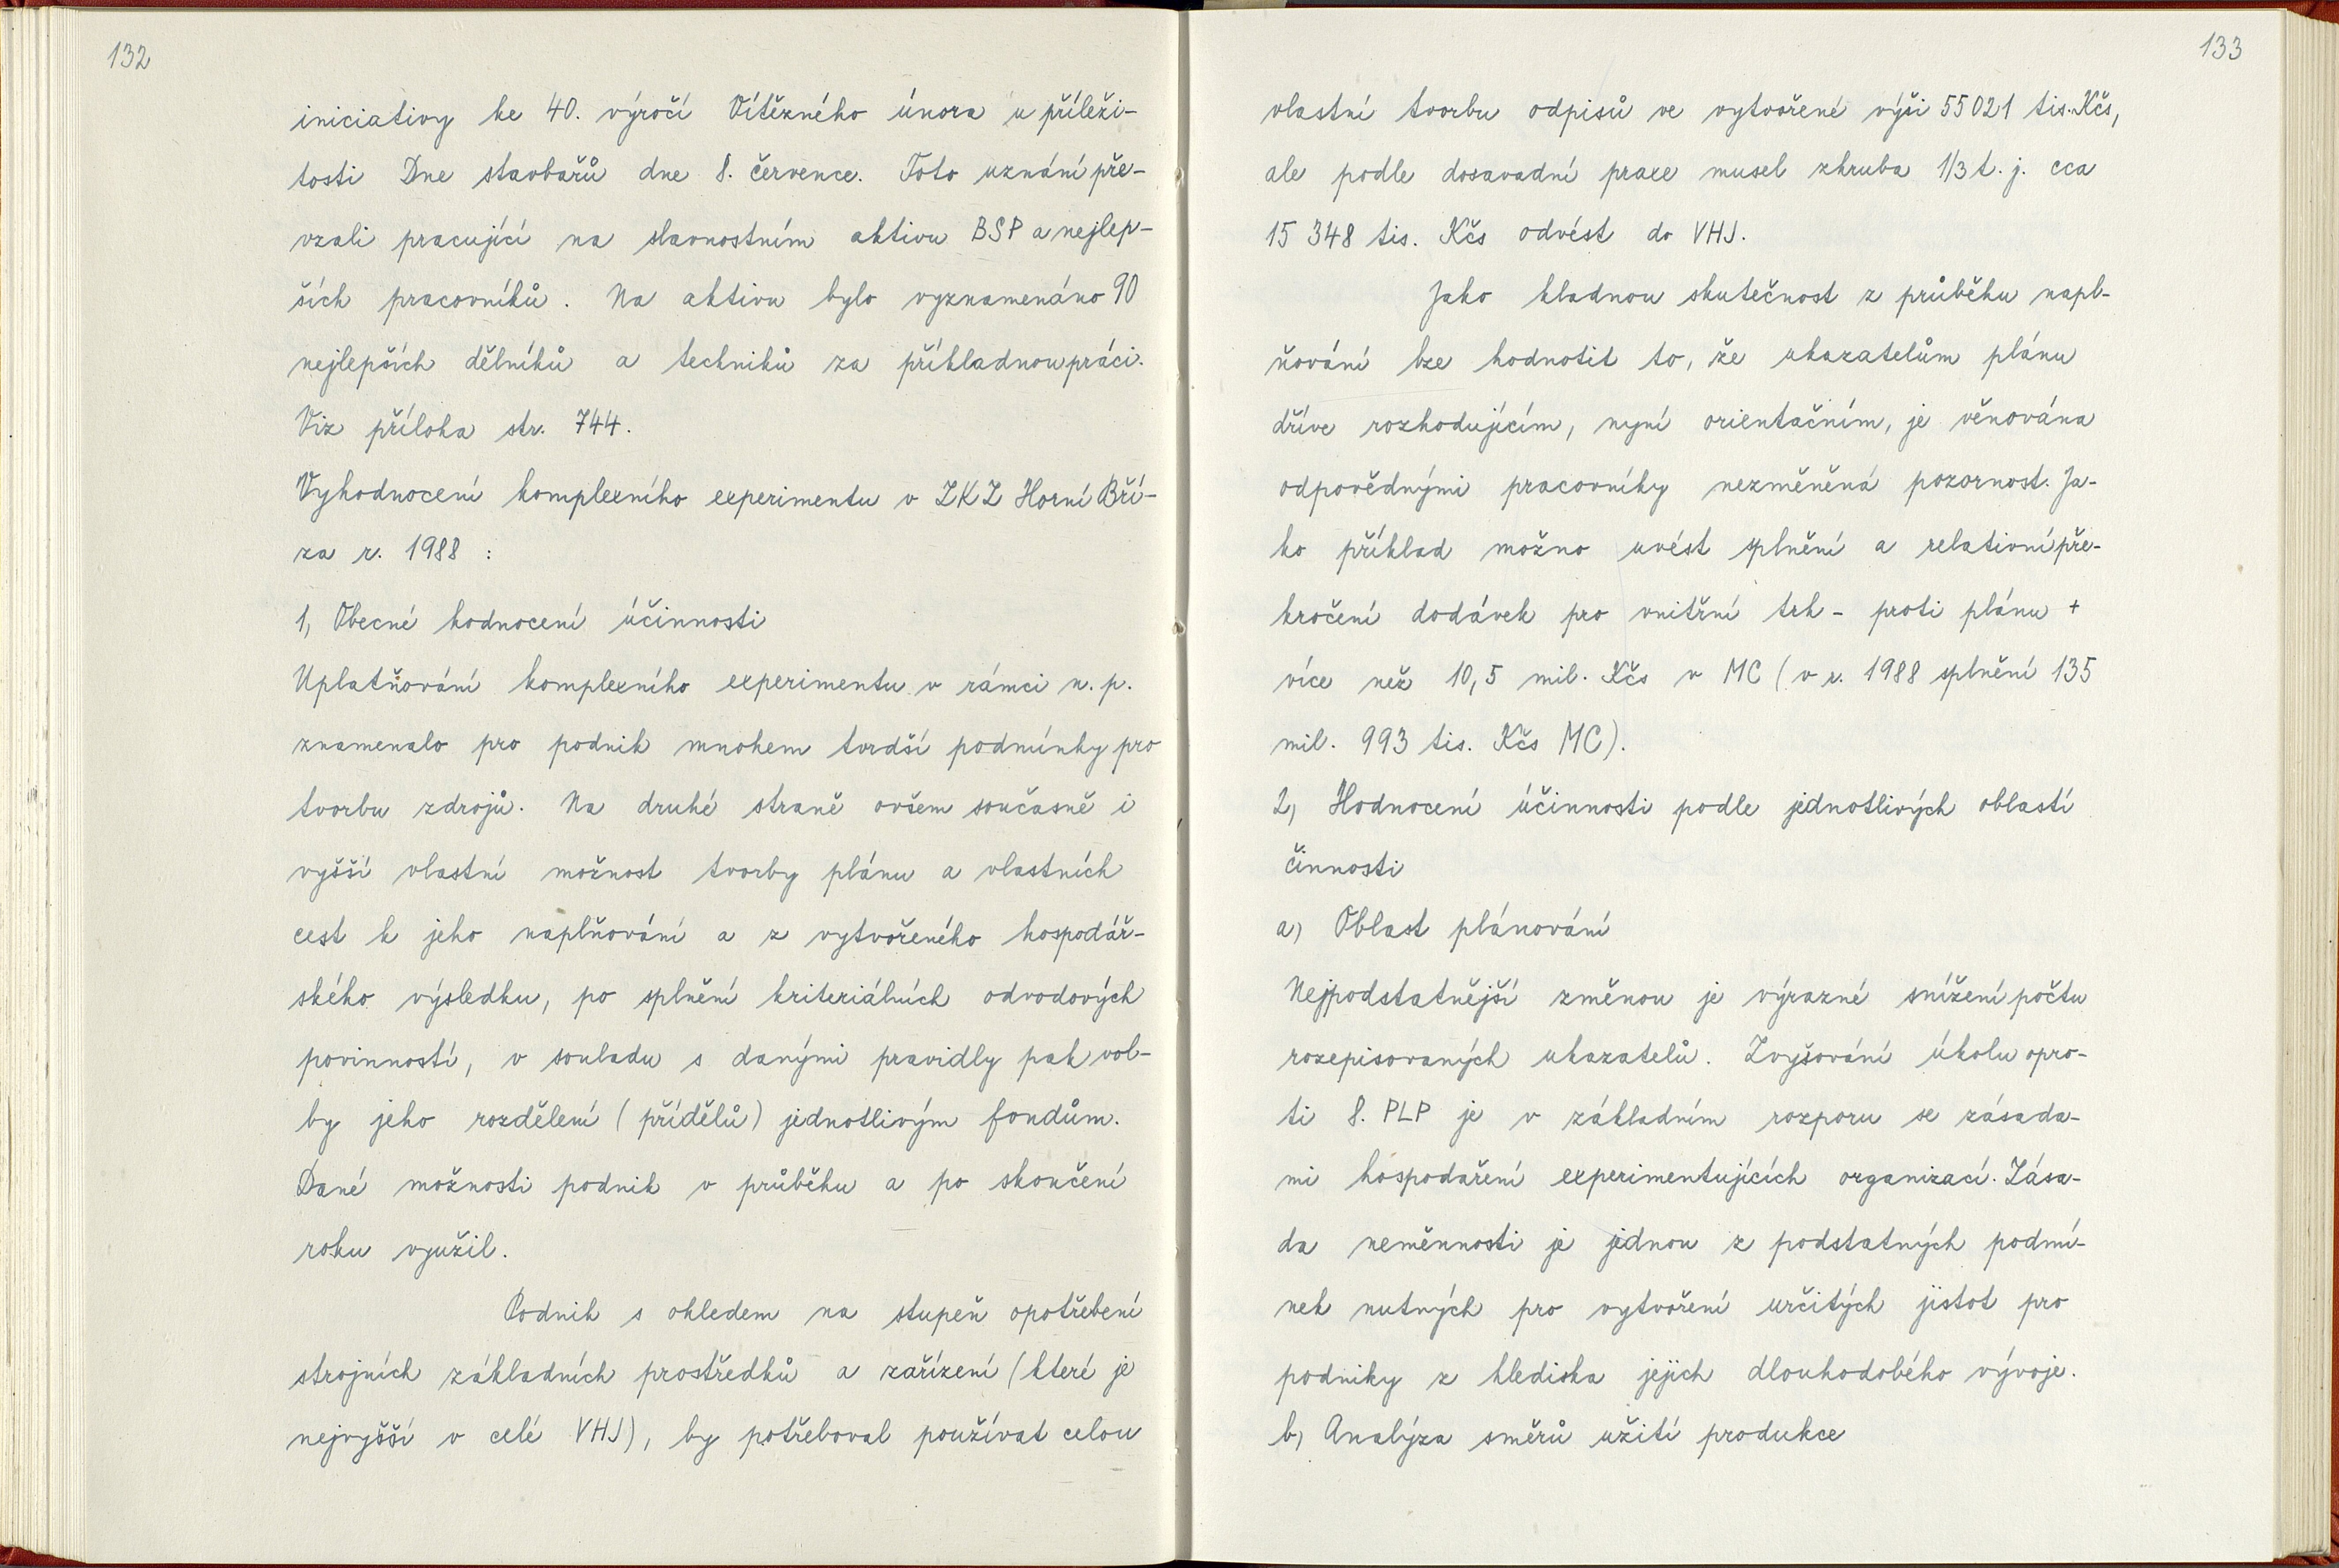 132
iniciativy ke 40. výročí Vítězného února u příleži-
tosti Dne stavbařů dne 8. července. Toto uznání pře-
vzali pracující na slavnostním aktivu BSP a nejlep-
ších pracovníků. Na aktivu bylo vyznamenáno 90
nejlepších dělníků a techniků za příkladnou práci.
Viz příloha str. 744.
Vyhodnocení komplexního experimentu v ZKZ Horní Bří-
za r. 1988 :
1, Obecné hodnocení účinnosti
Uplatňování komplexního experimentu v rámci n. p.
znamenalo pro podnik mnohem tvrdší podmínky pro
tvorbu zdrojů. Na druhé straně ovšem současně i
vyšší vlastní možnost tvorby plánu a vlastních
cest k jeho naplňování a z vytvořeného hospodář-
ského výsledku, po splnění kriteriálních odvodových
povinností, v souladu s danými pravidly pak vol-
by jeho rozdělení (přídělů) jednotlivým fondům.
Dané možnosti podnik v průběhu a po skončení
roku využil.
Podnik s ohledem na stupeň opotřebení
strojních základních prostředků a zařízení (které je
nejvyšší v celé VHJ), by potřeboval používat celou
133
vlastní tvorbu odpisů ve vytvořené výši 55021 tis. Kčs,
ale podle dosavadní praxe musel zhruba 1/3 t. j. cca
15 348 tis. Kčs odvést do VHJ.
Jako kladnou skutečnost z průběhu napl-
ňování lze hodnotit to, že ukazatelům plánu
dříve rozhodujícím, nyní orientačním, je věnována
odpovědnými pracovníky nezměněná pozornost. Ja-
ko příklad možno uvést splnění a relativní pře-
kročení dodávek pro vnitřní trh - proti plánu +
více než 10,5 mil. Kčs v MC (v r. 1988 splnění 135
mil. 993 tis. Kčs MC).
2, Hodnocení účinnosti podle jednotlivých oblastí
činnosti
a) Oblast plánování
Nejpodstatnější změnou je výrazné snížení počtu
rozepisovaných ukazatelů. Zvyšování úkolu opro-
ti 8. PLP je v základním rozporu se zásada-
mi hospodaření experimentujících organizací. Zása-
da neměnnosti je jednou z podstatných podmí-
nek nutných pro vytvoření určitých jistot pro
podniky z hlediska jejich dlouhodobého vývoje.
b) Analýza směrů užití produkce